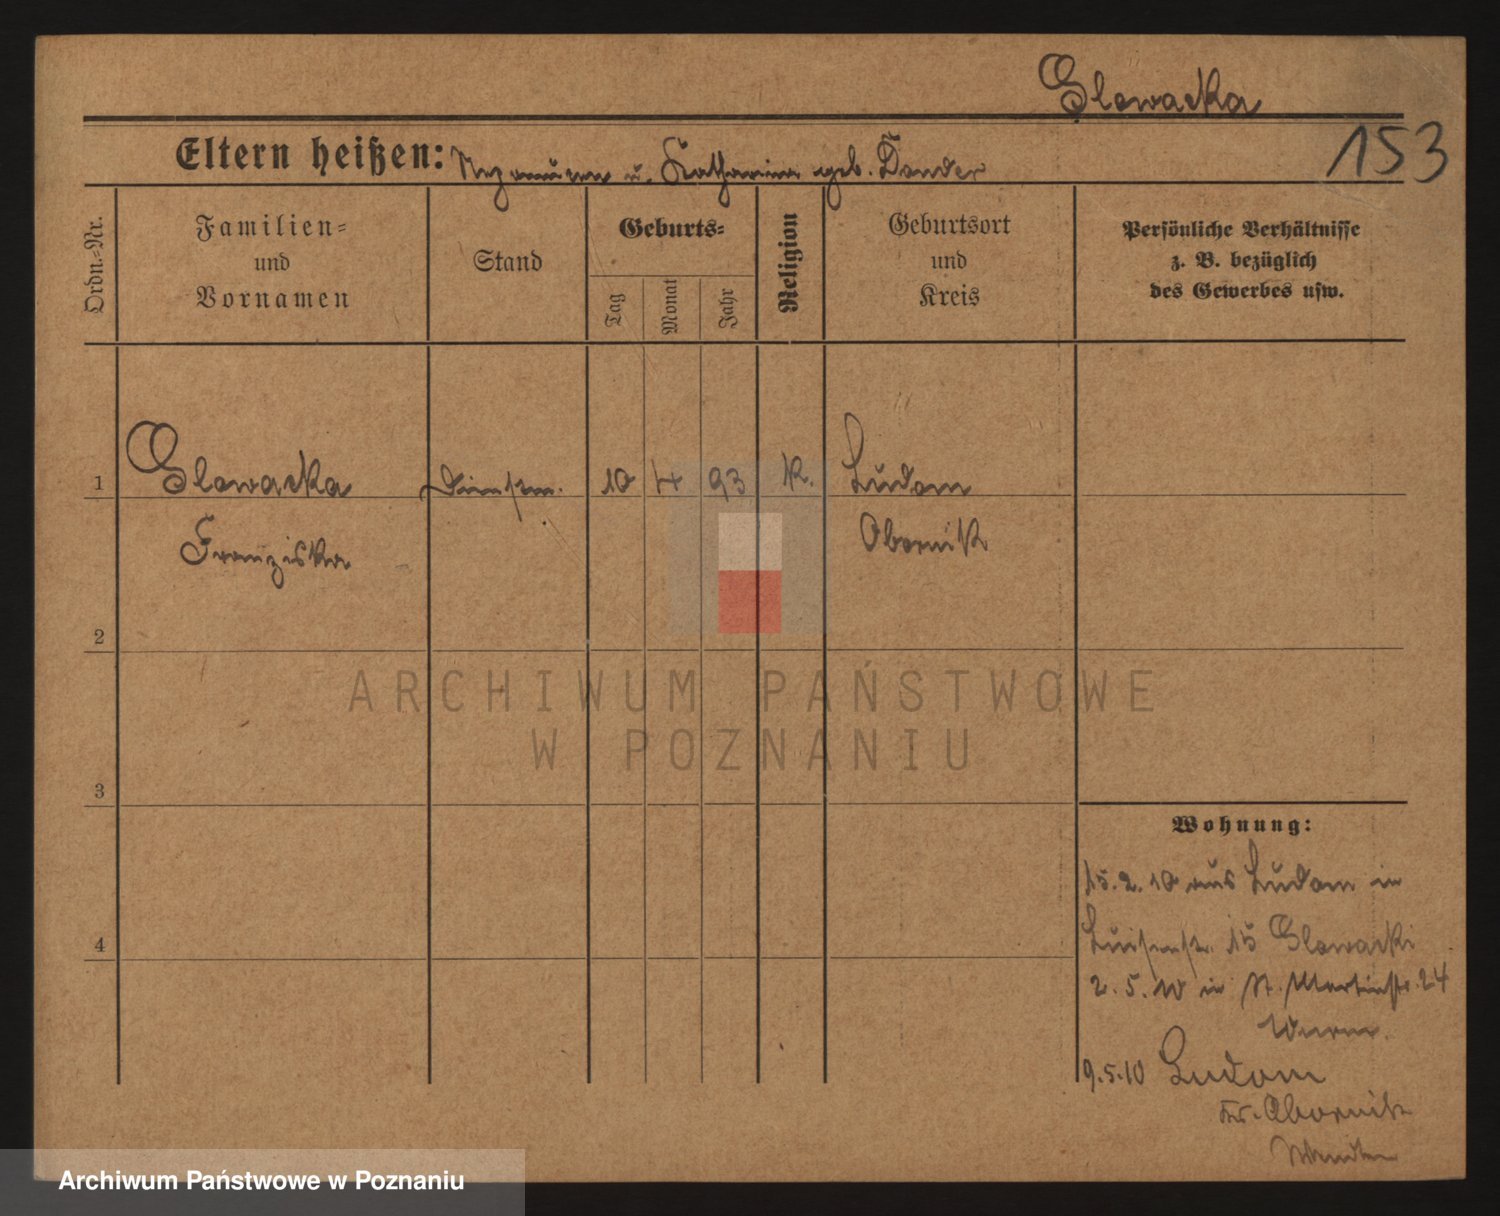 Glowacka
153
Eltern heißen: u. Katharina geb. Dander
Ordn.-Nr.
Familien-
und
Vornamen
Stand
Geburts-
Tag
Monat
Jahr
Religion
Geburtsort
und
Kreis
Persönliche Verhältnisse
z. B. bezüglich
des Gewerbes usw.
1
Glowacka
10
4
93
K.
Ludom
Franziska
Obornik
2
ARCHIWUM PAŃSTWOWE
W POZNANIU
3
Wohnung:
15.2.10 aus Ludom in
Luisenstr. 15 Glowacki
4
2.5.10 in St. Martinstr. 24
9.5.10 Ludom
Kr. Obornik
Archiwum Państwowe w Poznaniu